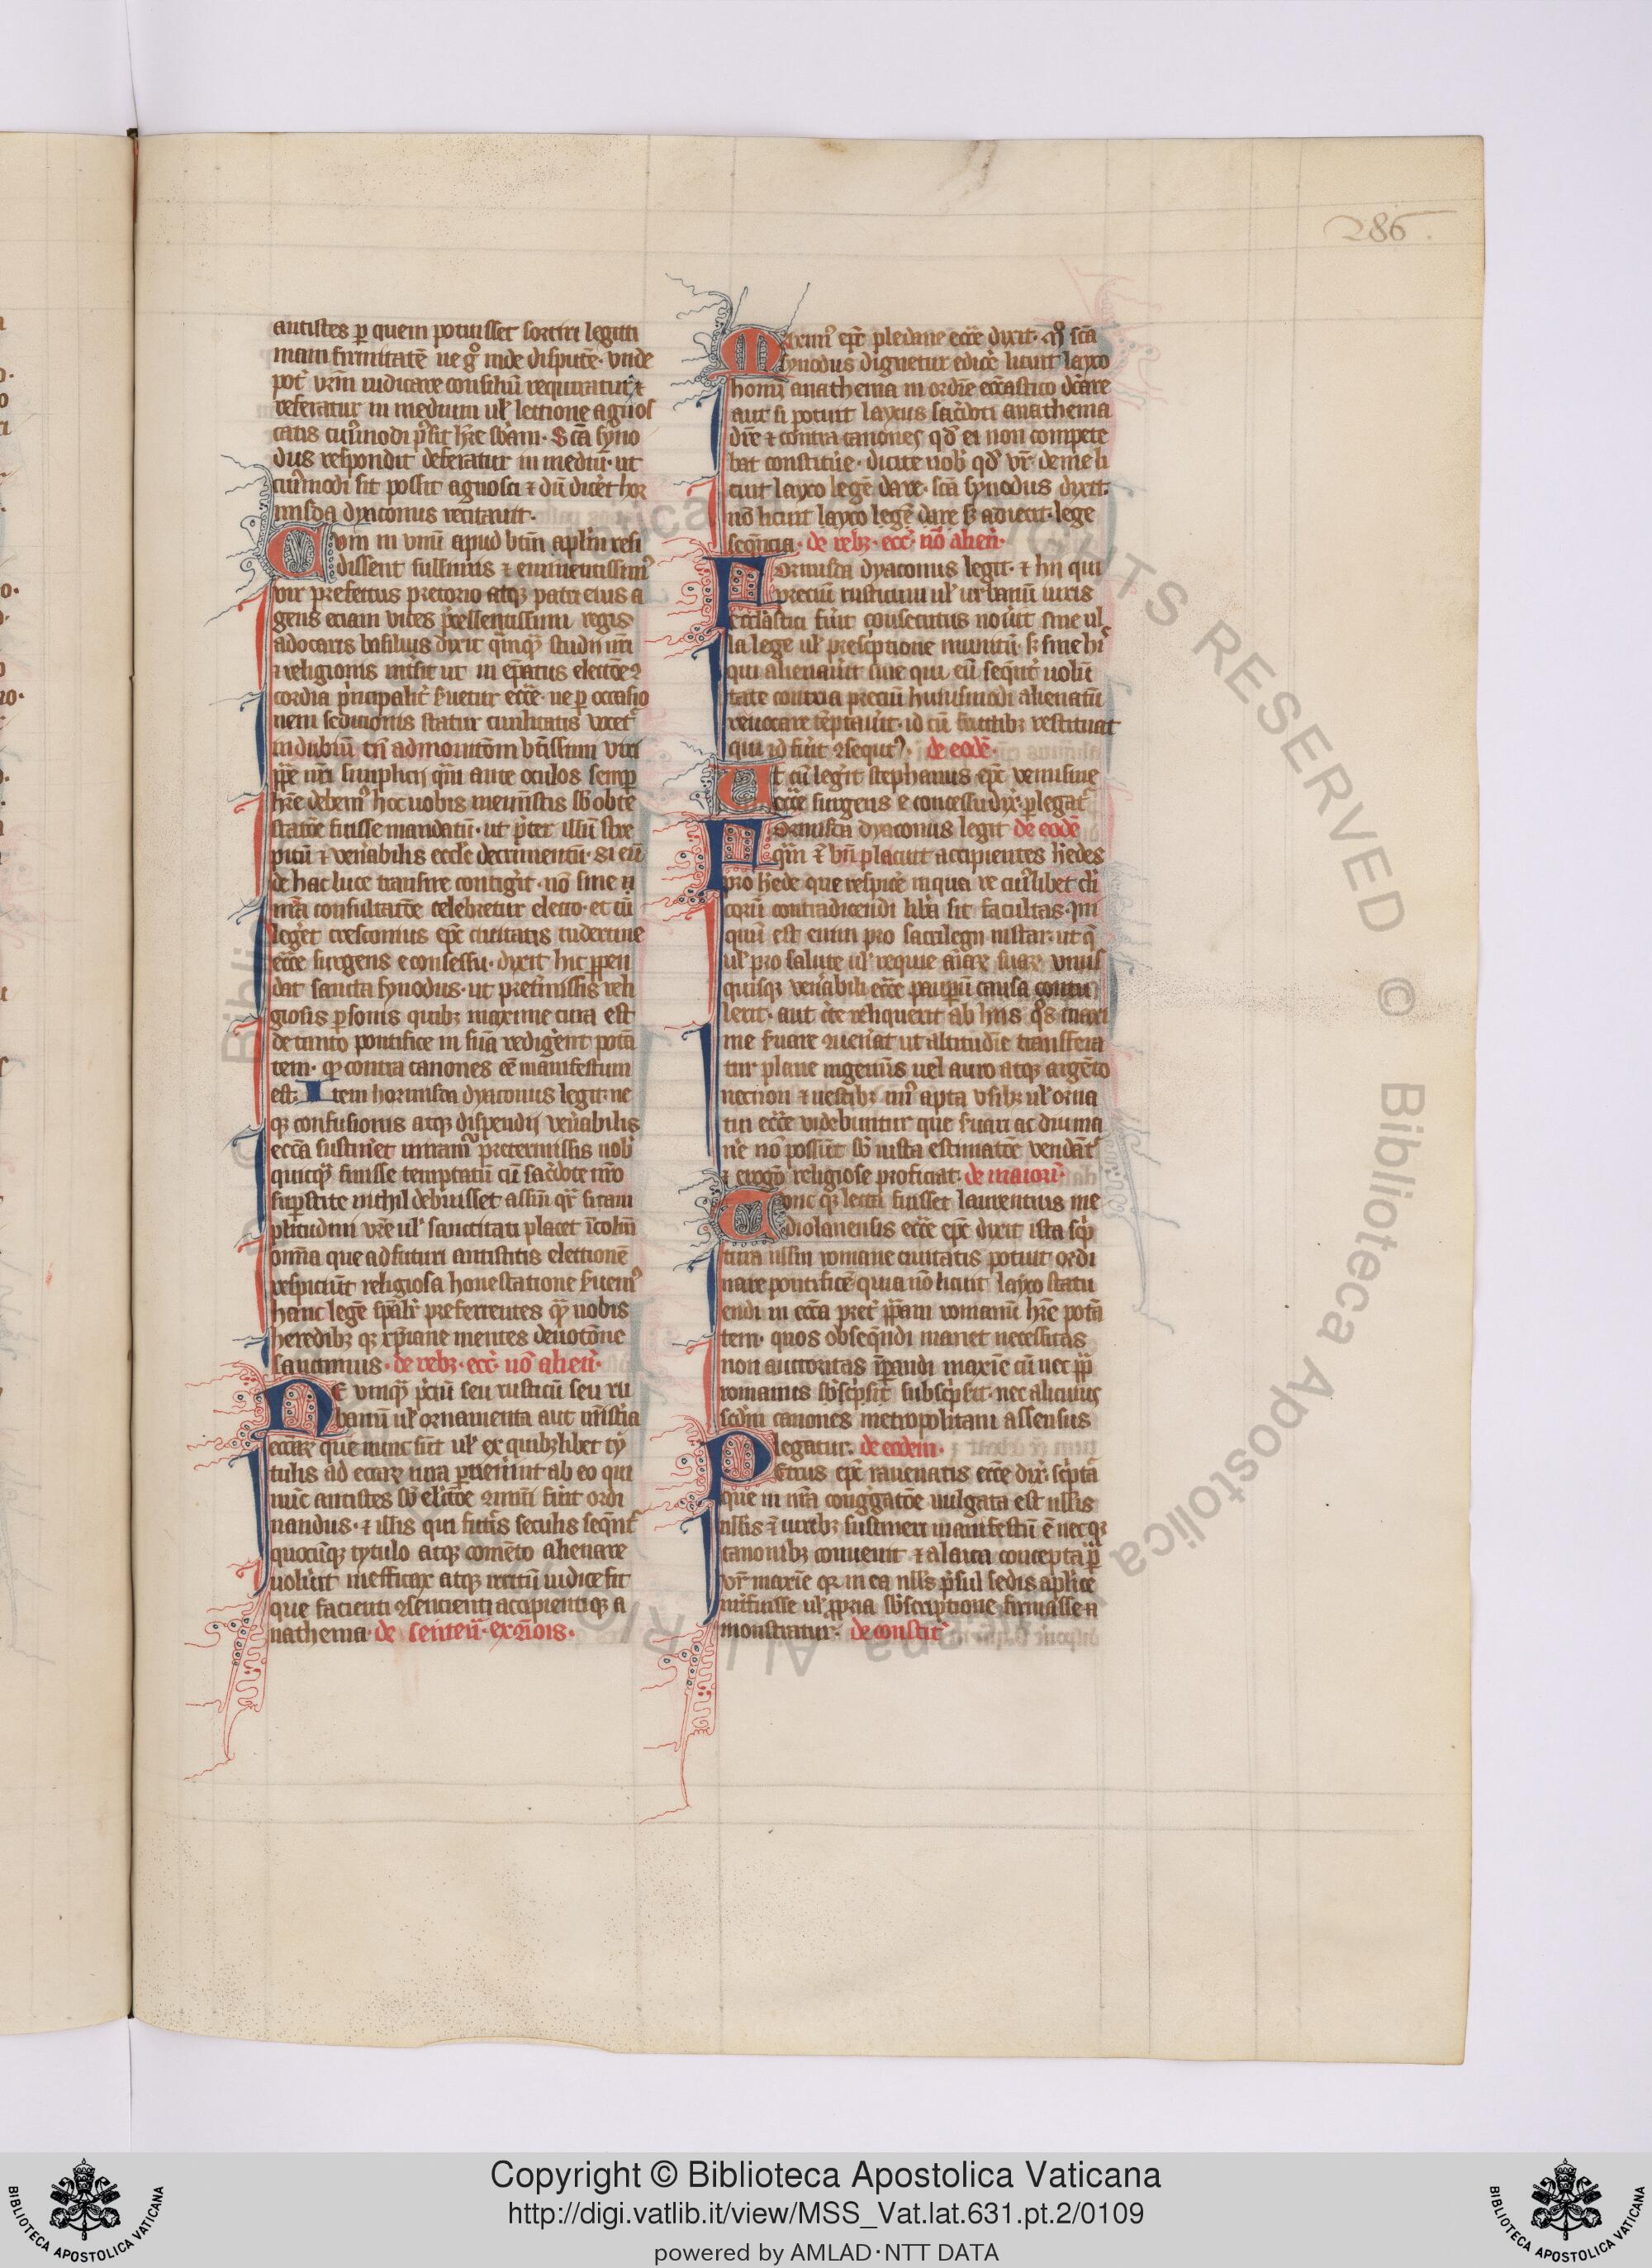 286.
antistes ꝑ quem potuisset sortiri legitti
mam firmitatē ne gͦ inde disputē· vnde
pot̛ vr̄m iudicare consiliū requiratur ⁊
referatur in medium ul̛ lectione agnos
catis cui̛modi p̛sit hr̄e sb̄am· Sc̄a syno
dus respondit deferatur in mediū· ut
cui̛modi sit possit agnosci ⁊ dū dicēt hor
misda dyaconus recitauit·
Cum in vnū apud btm̄ aplm̄ resi
dissent sullimis ⁊ eminentissim̛
vir prefectus pretorio atqꝫ patri eius a
gens eciam vices p̄cellentissimi regis
adocaris basilius dixit qͣmqͣꝫ studii nr̄i
⁊ religionis int̛sit ut in ep̄atus elect̄oe ꝯ
cordia p̛ncipalit̛ s̛uetur ecc̄e· ne ꝑ occasio
nem sedicionis status ciuilitatis vocet̛
in dubiū tn̄ admonicōm bt̄issimi viri
pp̄e nr̄i simplicij qͣm ante oculos semꝑ
hr̄e debem̛ hoc uobis meministis sb̄ obte
stacōe fuisse mandatū· ut p̛ter illiū stre
pitū ⁊ ven̛abilis eccl̄e decrimentū· si eū
de hac luce transire contig̛it· nō sine n
nr̄a consultacōe celebretur elccō· et cū
leg̛et cresconius ep̄c ciuitatis tudertine
ecc̄e surgens e consessu· dixit hic ꝑpen
dat sancta synodus· ut pret̛missis reli
giosis ꝑsonis quibꝫ maxime cura est
de tanto pontifice in suā redig̛ent potā
tem· qꝫ contra canones eē manifestum
est· Item hormisda dyaconus legit· ne
qꝫ confusionis atqꝫ dispendij ven̛abilis
ecc̄a sustin̛et miram̛ pretermissis nob̛
quicqͣꝫ fuisse temptatū cū sac̛dote nr̄o
suꝑstite nichil debuisset assūi qr̄ si tam
plitudini vr̄e ul̛ sanctitati placet īcolum̄
om̄a que ad futuri antistitis electionē
respiciūt religiosa honestatione s̛uem̛
hanc legē sp̄alit̛ preferentes qͣꝫ nobis
heredibꝫ qꝫ xp̄iane mentes deuotōne
sanctimus· de rebꝫ· ecc̄· nō alien̄·
Ne vmqͣꝫ p̛diū seu rusticū seu ru
banū ul̛ ornamenta aut mīst̛ia
ecc̄aꝝ que nunc sūt ul̛ ex quibꝫlibet ty
tulis ad ecc̄aꝝ iura ꝑuen̛int ab eo qui
nūc antistes sb̄ elc̄cōe ꝯmūi fūit ordi
nandus· ⁊ illis qui fut̛is seculis seqn̄t̛
quocūqꝫ tytulo atqꝫ comēto alienare
uolūit inefficax atqꝫ irritū iudice fit
que facienti ꝯsencienti accipientiqꝫ a
nathema· de senten̄· ex̄c̄ōis·
Maxim̛ ep̄c pledane ecc̄e dixit· mͦ sc̄a
synodus dignetur edic̛e licuit layco
homī anathema in ordīe ecc̄astico dc̄are
aut si potuit laycus sac̛doti anathema
dr̄e ⁊ contra canones qd̄ ei non compete
bat constitūe· dicite uob̛ qd̄ vr̄· de me li
cuit layco legē dare· sc̄a synodus dixit·
nō licuit layco legē dare s̛ adiecit· lege
seqn̄cia· de rebꝫ· ecc̄· nō alien̄·
Hormisda dyaconus legit· ⁊ hij qui
precium rusticum ul̛ urbanū iuris
ecc̄lastici fūit consecutus nouit sine ul
la lege ul̛ presc̛ptione munitū· s̛ siue hi̛
qui alienaưit siue qui eū seqūt̛ uolū
tate contria preciū huiusmodi alienatū
reuocare tēptaưit· id cū fructibꝫ restituat
qui id fūit ꝯsequt̛· de eodē·
At cū leg̛it stephanus ep̄c venusine
ecc̄e surgens e concessu dix̛· ꝑlegat̛
Hormisda dyaconus legit de eodē
qūi ⁊ hn̄ placuit accipientes h̛edes
pro h̛ede que respic̛e in qua re cui̛libet cl̛i
corū contradicendi lib̛a sit facultas· Ini
quū est enim pro sacrilegij instar· ut qͣ
ul̛ pro salute ul̛ requie aīaꝝ suaꝝ vnus
quisqꝫ ven̛abili ecc̄e pauꝑū causa contu
lerit· aut c̛te reliquerit ab hiis qͦs maxi
me s̛uare ꝯuen̛at ut alt̛utdie transfera
tur plane ingenuis uel auro atqꝫ argēto
necnon ⁊ uestibꝫ mi̛ apta vsibꝫ ul̛ orna
tui ecc̄e videbuntur que s̛uari ac diurna
ne nō possūt sb̄ iusta estimatōe vendāt̛
⁊ erogō religiose proficiat· de maiorī·
Conc qꝫ lecta fuisset laurentius me
diolanensis ecc̄e ep̄c dixit ista sc̛p
tura ullm̄ romane ciuitatis potuit ordi
nare pontificē quia nō licuit layco statu
endi in ecc̄a pret̛ pp̄am romanū hr̄e potā
tem· quos obseqn̄di manet necessitas
non auctoritas īꝑandi maxīe cū nec pp̄
romanus sb̄sc̛psit subsc̛psit· nec alicuius
scd̄m canones metropolitani assensus
legatur· de eodem·
Petrus ep̄c rauenatis ecc̄e dix̛· sc̛pta
que in nr̄a cong̛gatōe uulgata est nllis
nllis ⁊ iuribꝫ sustineri manifestū ē nec qꝫ
canonibꝫ conuenit ⁊ a laica concepta ꝑ
vr̄ maxīe qꝫ in ea nll̛s p̛sul sedis aplīce
int̛fuisse ul̛ ꝓpria sb̄scriptione firmasse n
monstratur· de constit̛
Copyright © Biblioteca Apostolica Vaticana
http://digi.vatlib.it/view/MSS_Vat.lat.631.pt.2/0109
powered by AMLAD·NTT DATA